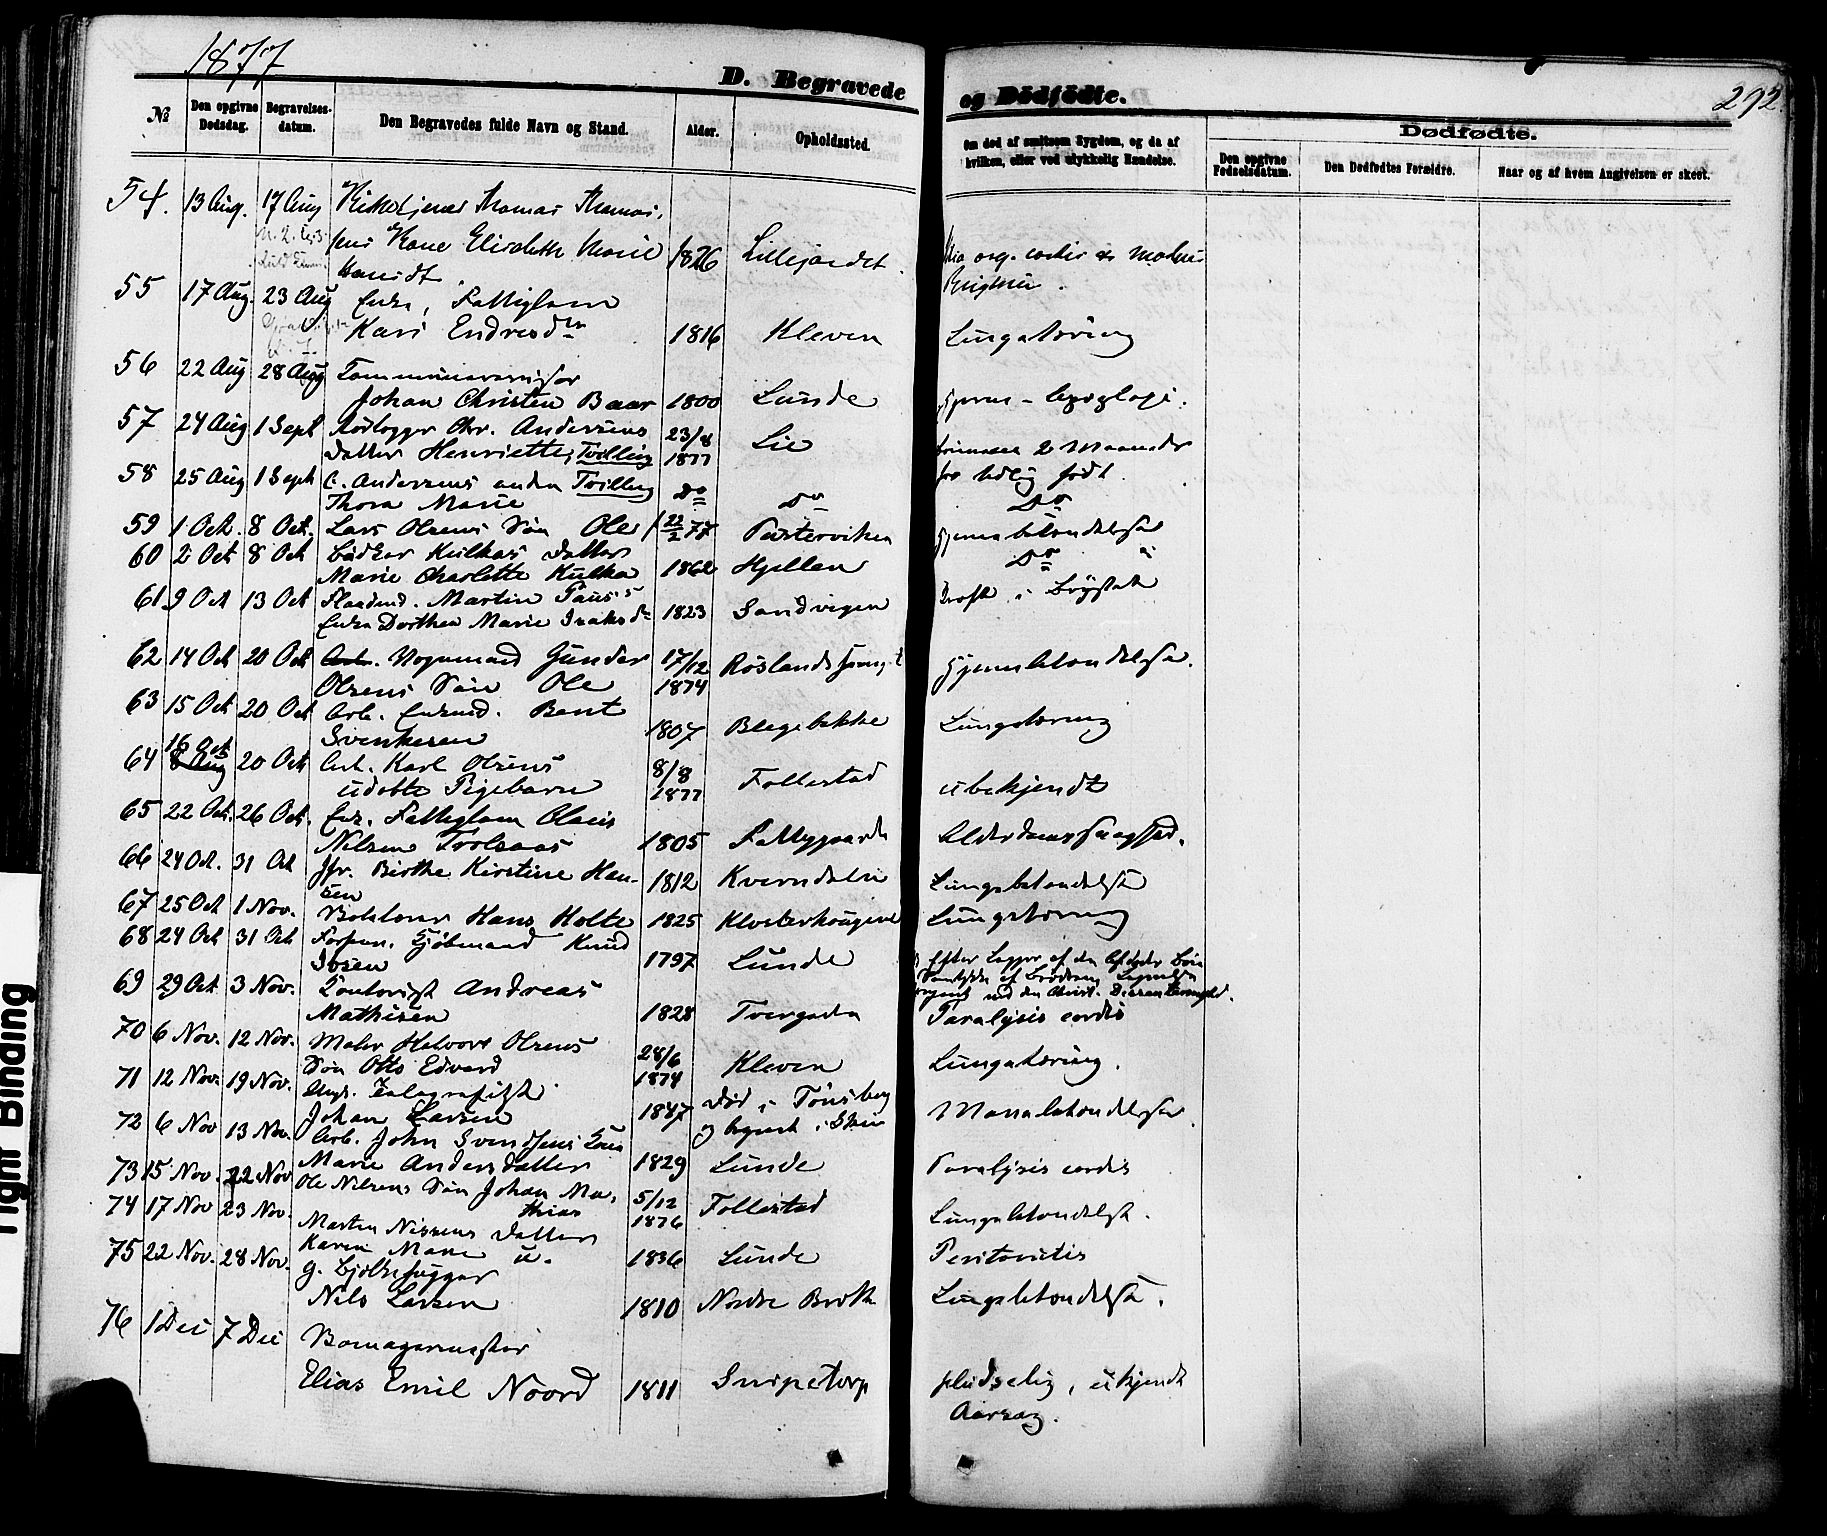 1877
D. Begravede og Dödfödte.
292
№
Den opgivne Dødsdag.
Begravelses-datum.
Den Begravedes fulde Navn og Stand.
Alder.
Opholdssted.
Om død af smitsom Sygdom, og da af hvilken, eller ved ulykkelig Hændelse.
Dødfødte.
Den opgivne Fødselsdatum.
Den Dødfødtes Forældre.
Naar og af hvem Angivelsen er skeet.
54. 13 Aug. 17 Aug Kirketjener Thomas Thomas-
sens Kone Elisabeth Marie 1826 Lillejordet
55 17 Aug. 23 Aug Enke, Fattiglem
Kari Endresdtr 1816 Kleven Lungetæring
56 22 Aug 28 Aug
Johan Christen Baar 1800 Lunde Hjerne-Apoplexi.
57 24 Aug 1 Sept Chr. Andersens 23/8
Datter Henriette, Tvilling 1877 Lie 2 Maaneder
for tidlig født.
58 25 Aug 1 Sept C. Andersens anden Tvilling Do Do Do
Thora Marie
59 1 Oct. 8 Oct. Lars Olsens Søn Ole 22/2 77 Hjernebetændelse
60 2 Oct 8 Oct Bødker Kulkas Datter
Marie Charlotte Kulka 1862 Hjellen Do
61 9 Oct 13 Oct Martin Paus's
Enke Dorthea Marie Isaksdr 1823 Sandvigen
62 14 Oct 20 Oct Vognmand Gunder 17/12 Hjernebetændelse.
Olsens Søn Ole 1874
63 15 Oct 20 Oct Arb. Enkemd. Bent
Svenkesen 1807 Blegebakke Lungetæring
64 16 Oct 8 Aug 20 Oct Arb. Karl Olsens 8/8
udøbte Pigebarn 1877 Follestad ubekjendt
65 22 Oct. 26 Oct. Enk. Fattiglem Claus
Nilsen 1805 Fattiggaarden Alderdomssvaghed.
66 24 Oct. 31 Oct Jfr. Birthe Kirstine Han-
sen 1812 Kverndalen Lungebetændelse
67 25 Oct 1 Nov. Hans Holte 1825 Klosterhougene Lungetæring
68 24 Oct 31 Oct Kjøbmand Knud
Ibsen 1797 Lunde
69 29 Oct 3 Nov. Kontorist Andreas
Mathisen 1828 Tvergaden Paralysis cordis
70 6 Nov. 12 Nov. Maler Halvor Olsens 28/6
Søn Otto Edvard 1874 Kleven Lungetæring.
71 12 Nov. 19 Nov. Telegrafist
Johan Larsen 1847 død i Tönsberg
og begravet i Skien Mavebetændelse
72 6 Nov 13 Nov. Arb. John Svendsens Kone
Marie Andersdatter 1829 Lunde Paralysis cordis
73 15 Nov. 22 Nov Ole Nilsens Søn Johan Ma-
thias 5/12 1876 Follestad Lungebetændelse.
74 17 Nov 23 Nov. Morten Nissens Datter
Karen Marie u. 1836 Lunde Peritonitis
75 22 Nov. 28 Nov. g. Bjelkehugger
Nils Larsen 1810 Nordre Brekke Lungebetændelse.
76 1 Dec 7 Dec Bomagermester
Elias Emil Noord 1811 Snipetorp pludselig, ukjendt
Aarsag.
Tight Binding